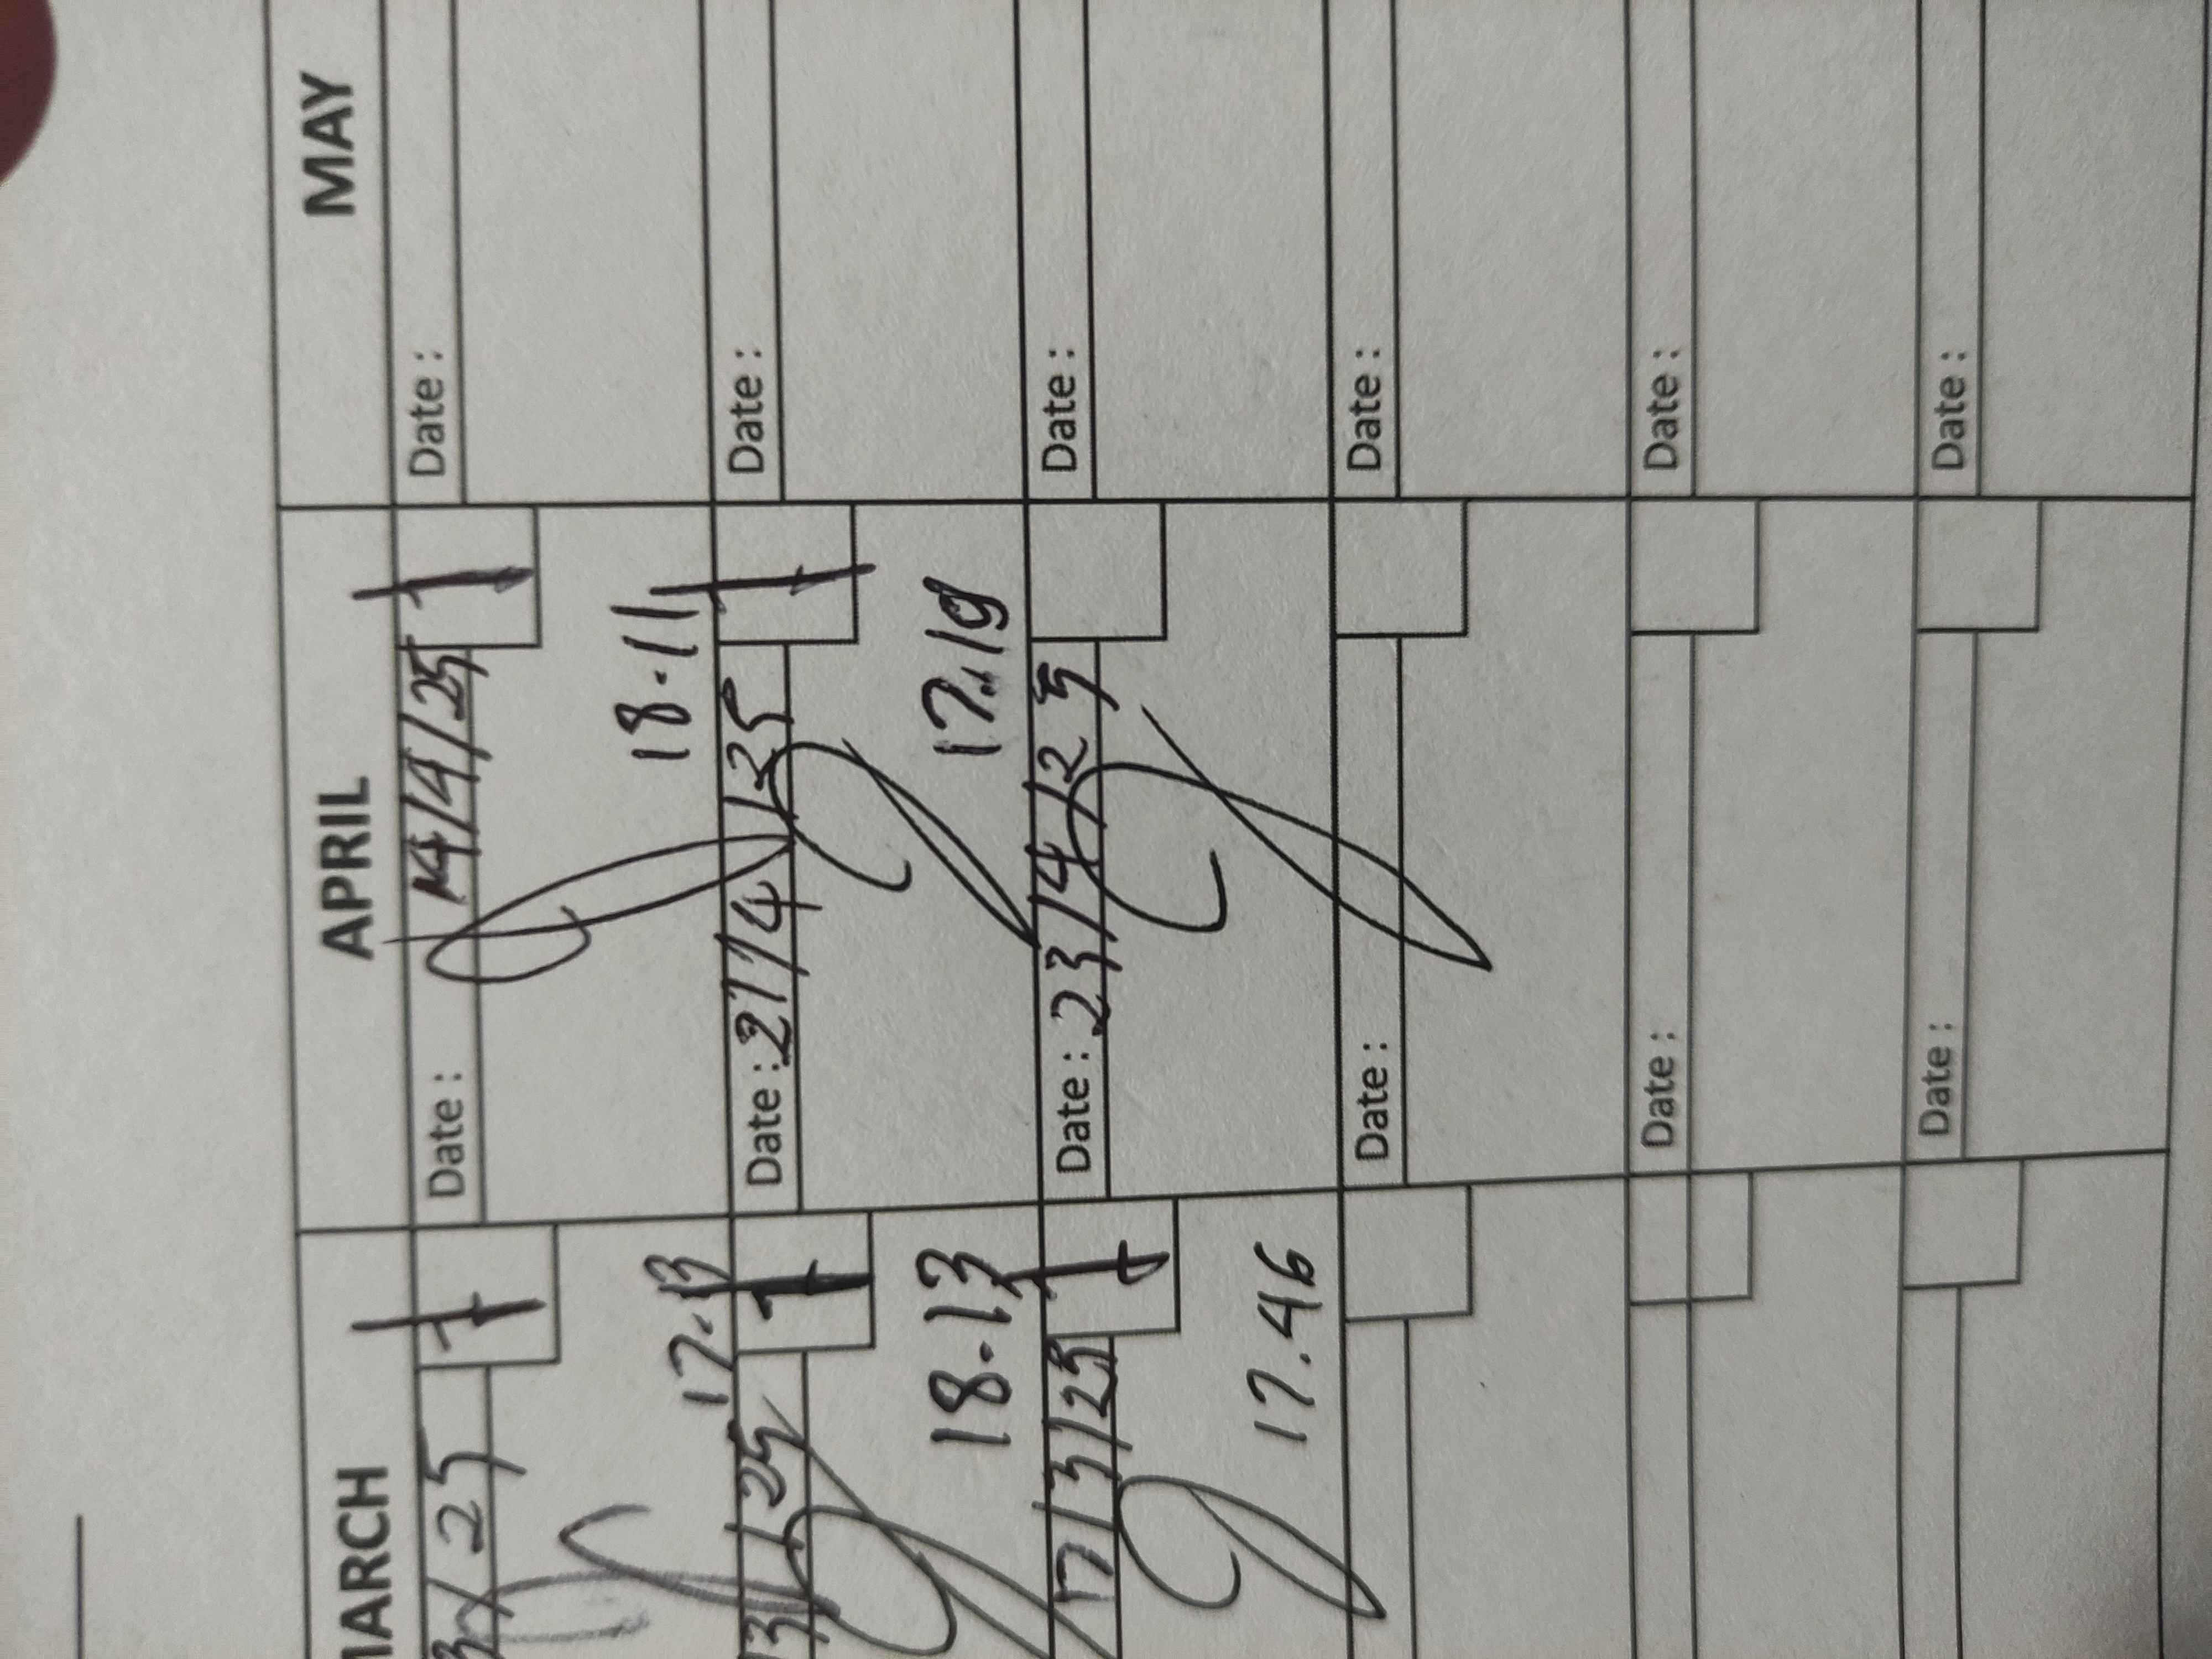 MARCH APRIL MAY
3/25 1 Date : 14/4/25 1 Date :
17.13 18.11
3/25 1 Date : 21/4/25 1 Date :
18.13 17.19
17/3/25 1 Date : 23/4/25 Date :
17.46
Date : Date :
Date : Date :
Date : Date :